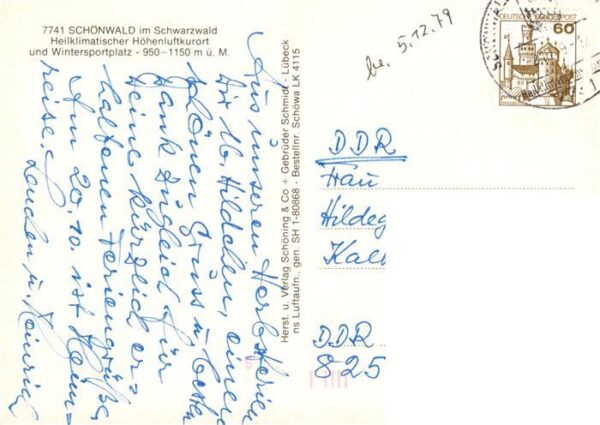 7741 SCHÖNWALD im Schwarzwald
Heilklimatischer Höhenluftkurort
und Wintersportplatz - 950-1150 m ü. M.
Aus unseren Herbstferien
Dir lb. Hildchen, einen
schönen Gruss u. besten
Dank zugleich für
Deine kürzlich er-
haltenen Feriengrüße.
Am 20.10. ist Heim-
reise.
u. Heinrich
Herst. u. Verlag Schöning & Co + Gebrüder Schmidt - Lübeck
ns Luftaufn., gen. SH 1-80868 - Bestellnr. Schöwa LK 4115
be. 5.12.79
DEUTSCHE BUNDESPOST
60
DDR
Frau
Hildeg
Kal
DDR
825